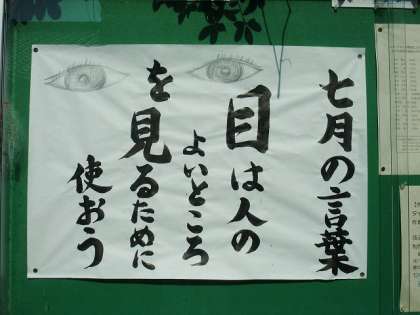 七月の言葉
目は人の
よいところ
を見るために
使おう